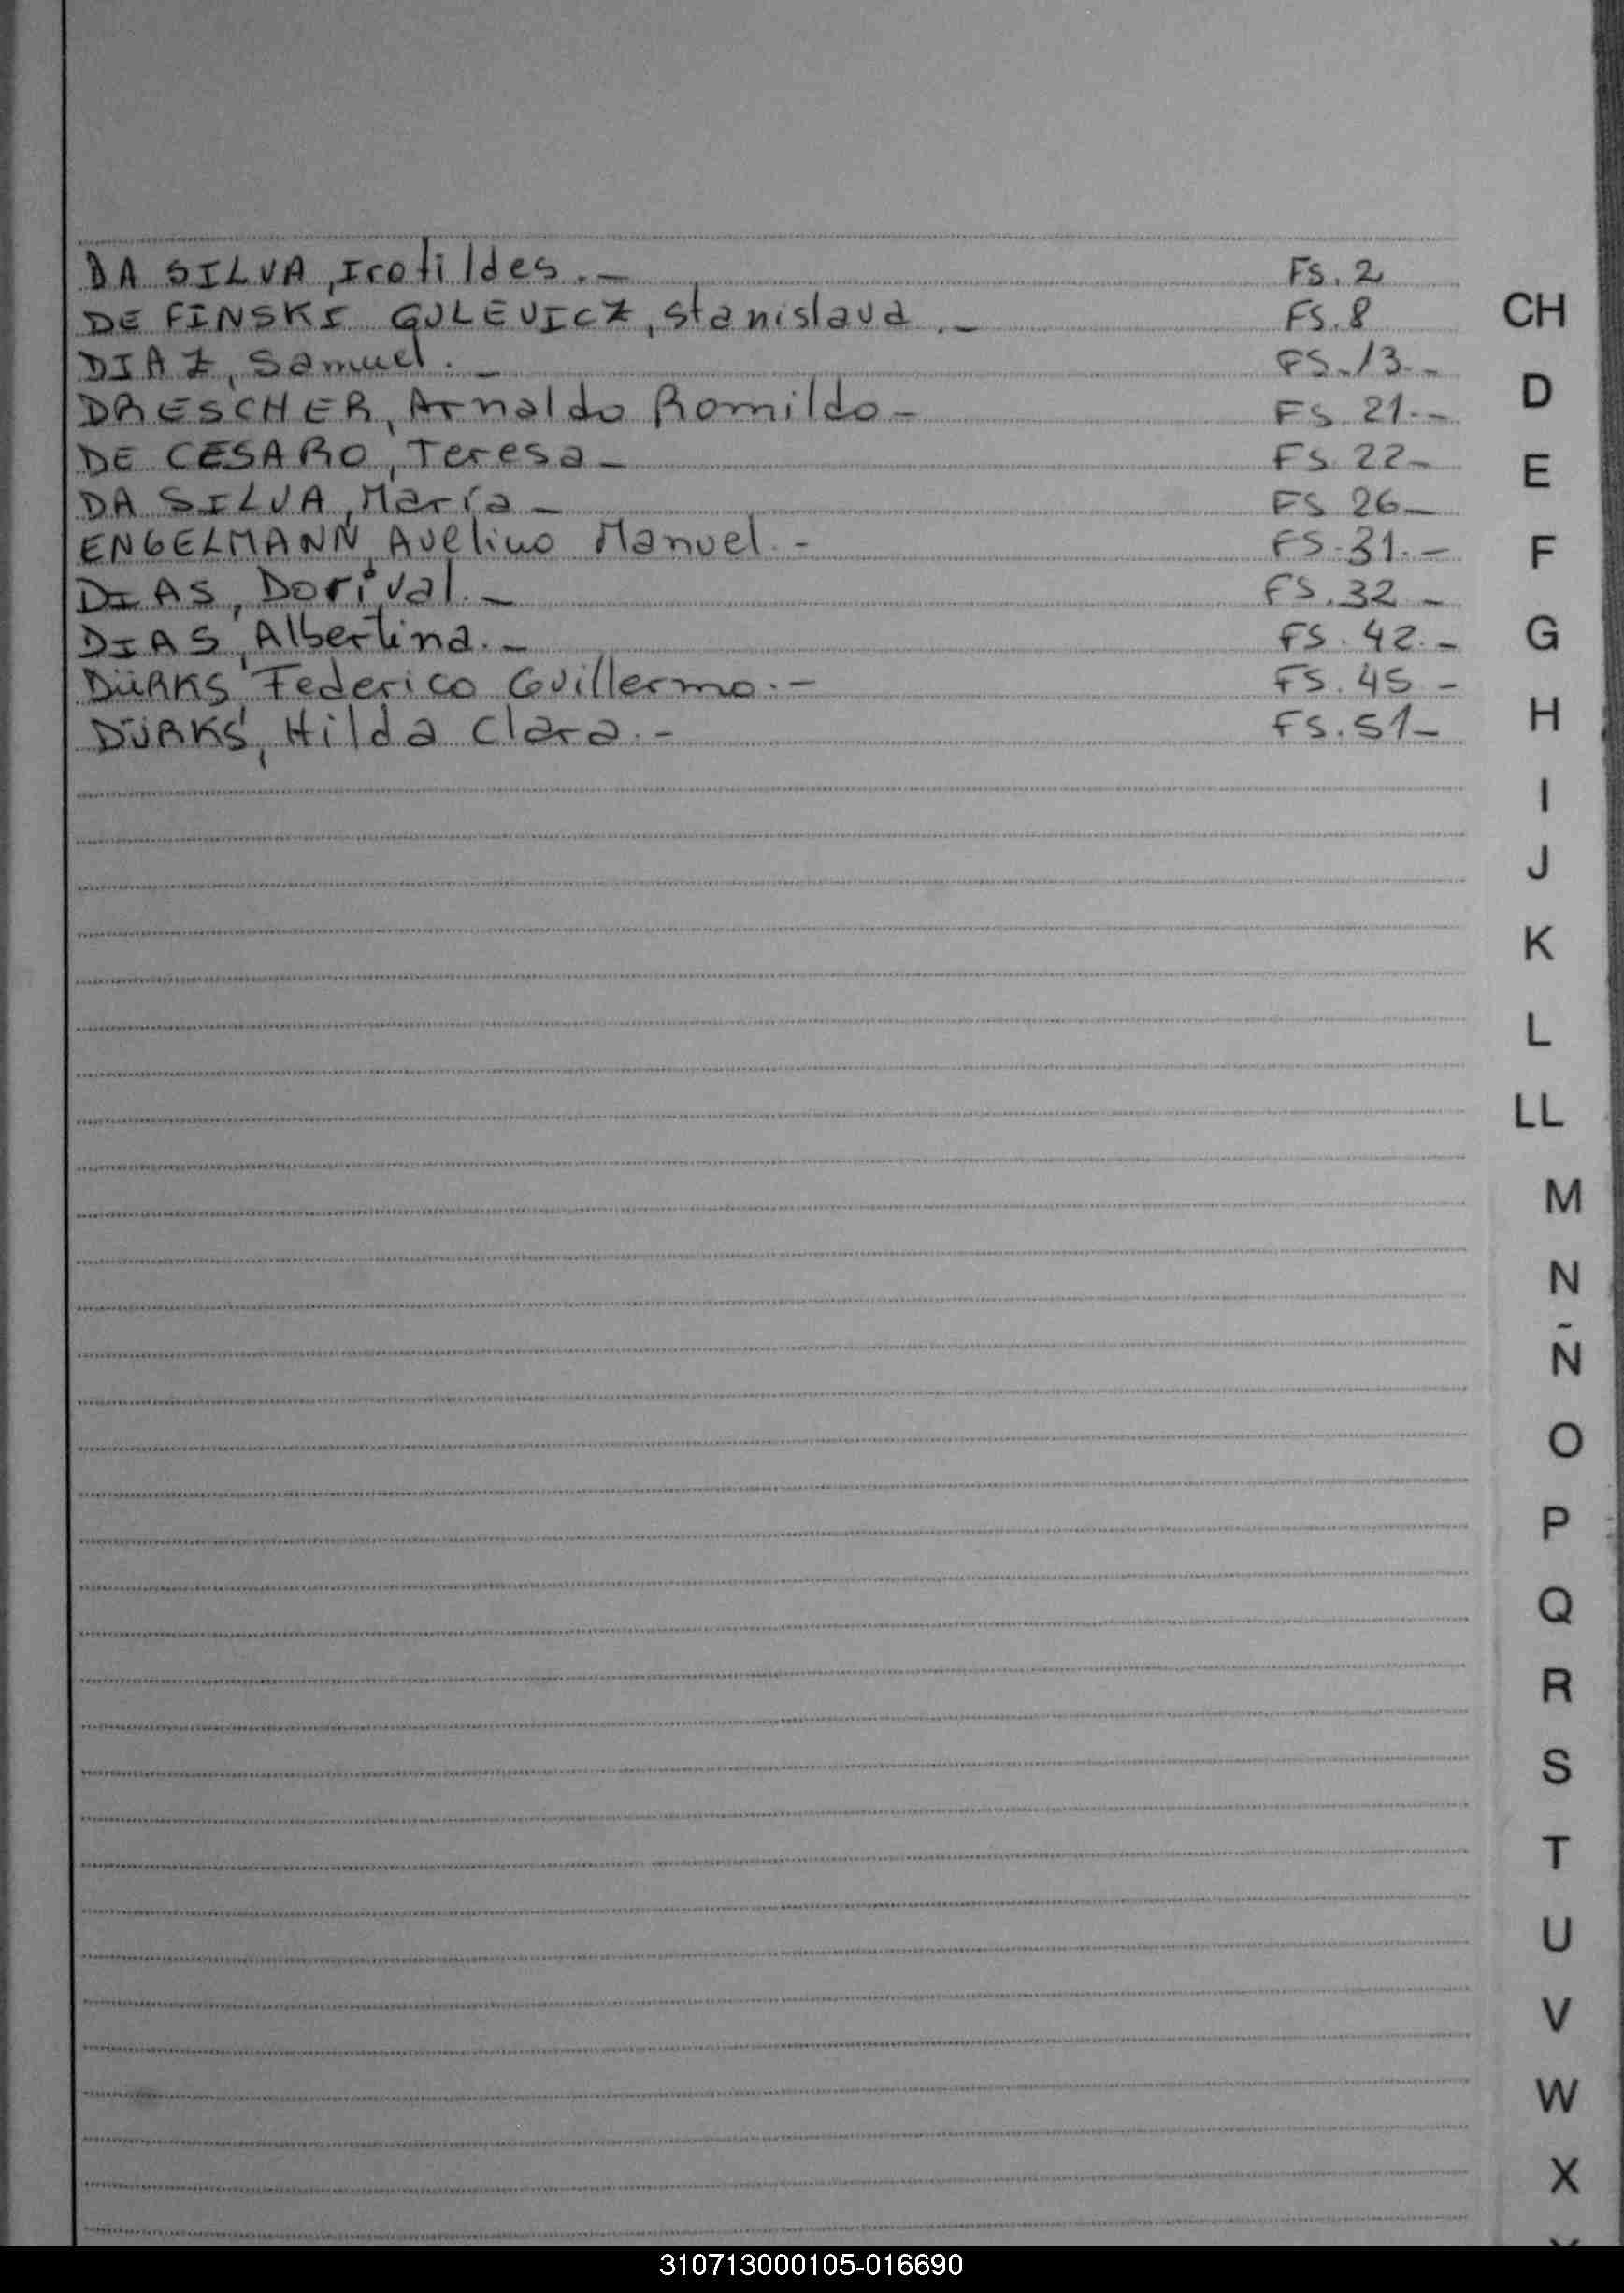 DA SILVA, Irotildes.- FS. 2
DE FINSKI GULEVICZ, Stanislava.- FS. 8
DIAZ, Samuel.- FS. 13.-
DRESCHER, Arnaldo Romildo- FS. 21.-
DE CESARO, Teresa- FS. 22-
DA SILVA, María- FS 26-
ENGELMANN, Avelino Manuel.- FS. 31.-
DIAS, Dorival.- FS. 32-
DIAS, Albertina.- FS. 42.-
DÜRKS, Federico Guillermo.- FS. 45-
DÜRKS, Hilda Clara.- FS. 51-
CH
D
E
F
G
H
I
J
K
L
LL
M
N
Ñ
O
P
Q
R
S
T
U
V
W
X
310713000105-016690